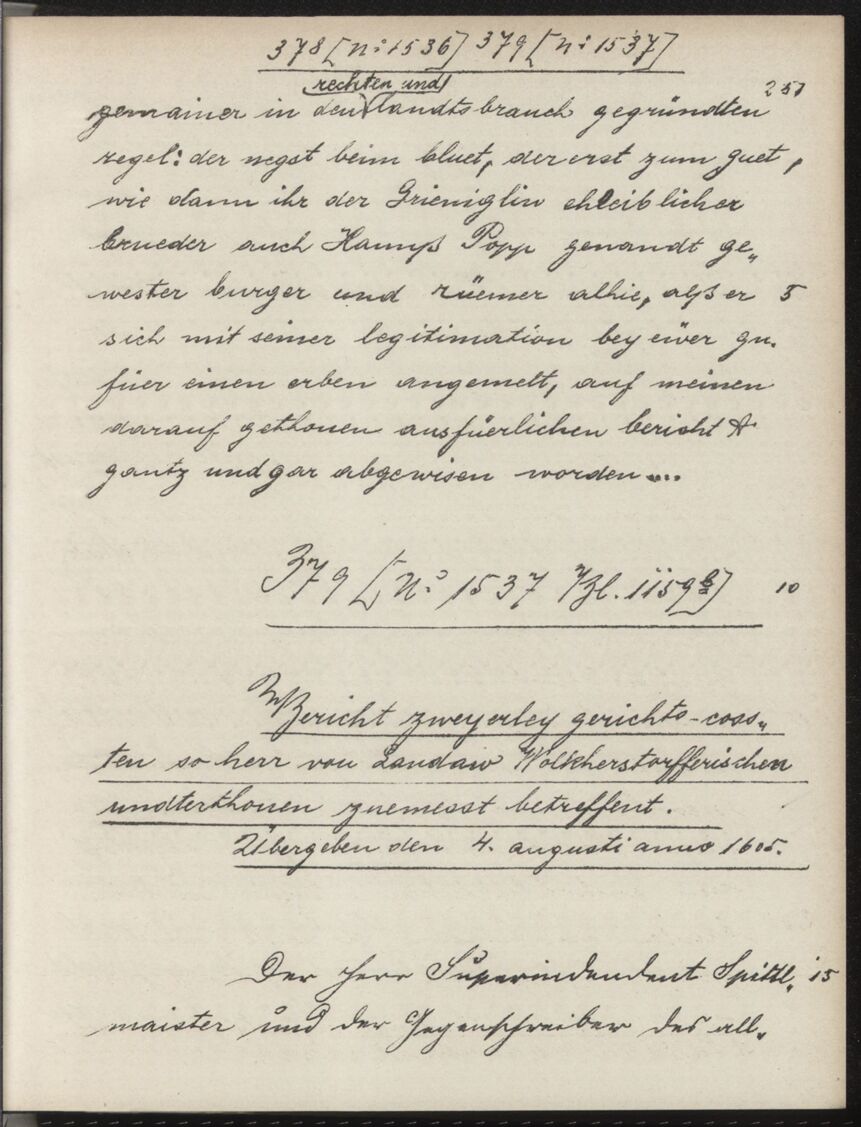 378 [N: 1536] 379 [N: 1537]
251
rechten und
gemainer in den landtsbrauch gegründten
regel: der negst beim bluet, der erst zum guet,
wie dann ihr der Grieniglin ehleiblicher
brueder auch Hannß Popp genandt ge„
wester burger und rüemer alhie, alß er 5
sich mit seiner legitimation bey ewer gn.
füer einen erben angemelt, auf meinen
darauf gethonen ausfüerlichen bericht
gantz und gar abgewisen worden ....
379 [N: 1537 1159] 10
Bericht zweyerley gerichts-coss„
ten so herr von Landaw Wolkherstorfferischen
undterthonen zuemesst betreffent.
Übergeben den 4. augusti anno 1605.
Der herr Superindendent Spittl„ 15
maister und der Gegenschreiber des all„